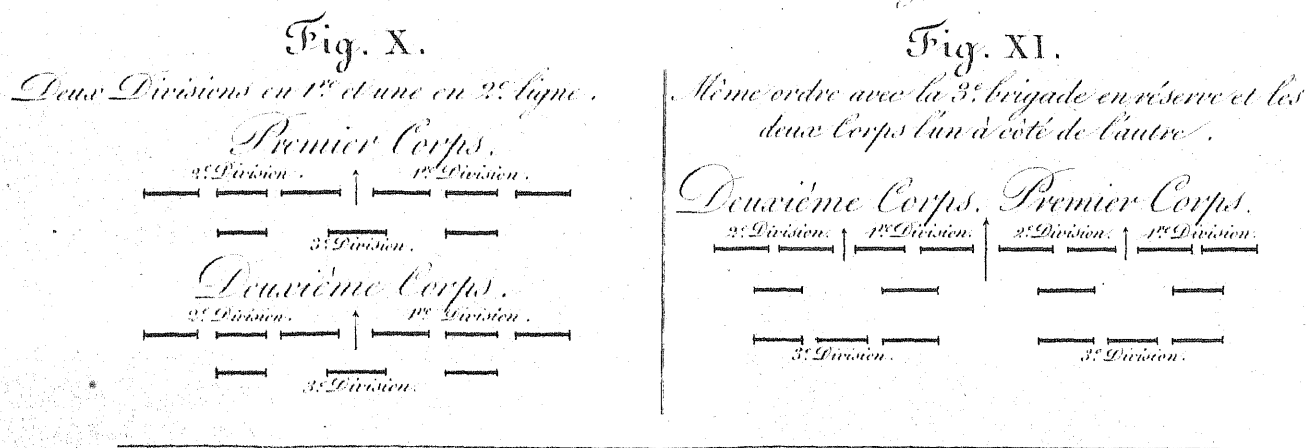 Fig. X.
Deux Divisions en 1re et une en 2e ligne.
Premier Corps.
2e Division. 1re Division.
3e Division.
Deuxième Corps.
2e Division. 1re Division.
3e Division.
Fig. XI.
Même ordre avec la 3e brigade en réserve et les
deux Corps l'un à côté de l'autre.
Deuxième Corps. Premier Corps.
2e Division. 1re Division. 2e Division. 1re Division.
3e Division. 3e Division.